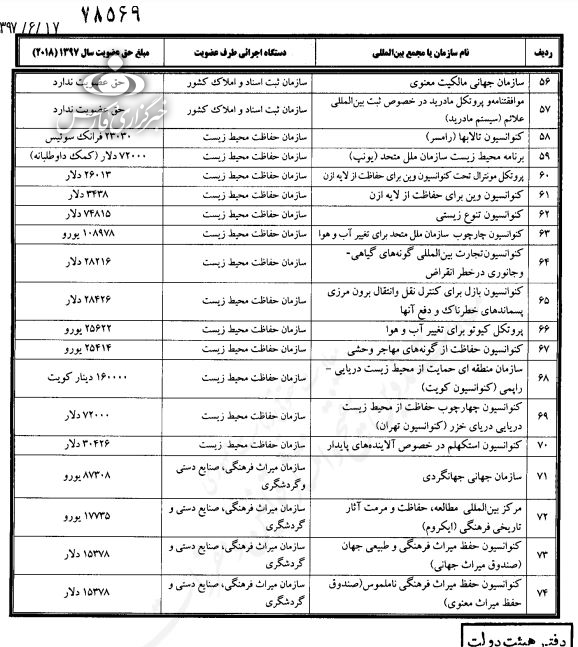 ۷۸۵۶۹
۱۳۹۷/۶/۱۷
ردیف نام سازمان یا مجمع بین‌المللی دستگاه اجرائی طرف عضویت مبلغ حق عضویت سال ۱۳۹۷ (۲۰۱۸)
۵۶ سازمان جهانی مالکیت معنوی سازمان ثبت اسناد و املاک کشور حق عضویت ندارد
۵۷ موافقتنامه‌و پروتکل مادرید در خصوص ثبت بین‌المللی علائم (سیستم مادرید) سازمان ثبت اسناد و املاک کشور حق عضویت ندارد
۵۸ کنوانسیون تالابها (رامسر) سازمان حفاظت محیط زیست ۲۳۰۳۰ فرانک سوئیس
۵۹ برنامه محیط زیست سازمان ملل متحد (یونپ) سازمان حفاظت محیط زیست ۷۲۰۰۰ دلار (کمک داوطلبانه)
۶۰ پروتکل مونترال تحت کنوانسیون وین برای حفاظت از لایه ازن سازمان حفاظت محیط زیست ۲۶۰۱۳ دلار
۶۱ کنوانسیون وین برای حفاظت از لایه ازن سازمان حفاظت محیط زیست ۳۴۳۸ دلار
۶۲ کنوانسیون تنوع زیستی سازمان حفاظت محیط زیست ۷۴۸۱۵ دلار
۶۳ کنوانسیون چارچوب سازمان ملل متحد برای تغییر آب و هوا سازمان حفاظت محیط زیست ۱۰۸۹۷۸ یورو
۶۴ کنوانسیون‌تجارت بین‌المللی گونه‌های گیاهی-
وجانوری درخطر انقراض سازمان حفاظت محیط زیست ۲۸۲۱۶ دلار
۶۵ کنوانسیون بازل برای کنترل نقل وانتقال برون مرزی
پسماندهای خطرناک و دفع آنها سازمان حفاظت محیط زیست ۲۸۴۲۶ دلار
۶۶ پروتکل کیوتو برای تغییر آب و هوا سازمان حفاظت محیط زیست ۲۵۶۲۲ یورو
۶۷ کنوانسیون حفاظت از گونه‌های مهاجر وحشی سازمان حفاظت محیط زیست ۲۵۴۱۴ یورو
۶۸ سازمان منطقه ای حمایت از محیط زیست دریایی –
راپمی (کنوانسیون کویت) سازمان حفاظت محیط زیست ۱۶۰۰۰۰ دینار کویت
۶۹ کنوانسیون چهارچوب حفاظت از محیط زیست
دریایی دریای خزر (کنوانسیون تهران) سازمان حفاظت محیط زیست ۷۲۰۰۰ دلار
۷۰ کنوانسیون استکهلم در خصوص آلاینده‌های پایدار سازمان حفاظت محیط زیست ۳۰۴۲۶ دلار
۷۱ سازمان جهانی جهانگردی سازمان میراث فرهنگی، صنایع دستی و گردشگری ۸۷۳۰۸ یورو
۷۲ مرکز بین‌المللی مطالعه، حفاظت و مرمت آثار
تاریخی فرهنگی (ایکروم) سازمان میراث فرهنگی، صنایع دستی و گردشگری ۱۷۷۳۵ یورو
۷۳ کنوانسیون حفظ میراث فرهنگی و طبیعی جهان
(صندوق میراث جهانی) سازمان میراث فرهنگی، صنایع دستی و گردشگری ۱۵۳۷۸ دلار
۷۴ کنوانسیون حفظ میراث فرهنگی ناملموس(صندوق
حفظ میراث معنوی) سازمان میراث فرهنگی، صنایع دستی و گردشگری ۱۵۳۷۸ دلار
خبرگزاری فارس
دفتر هیئت دولت